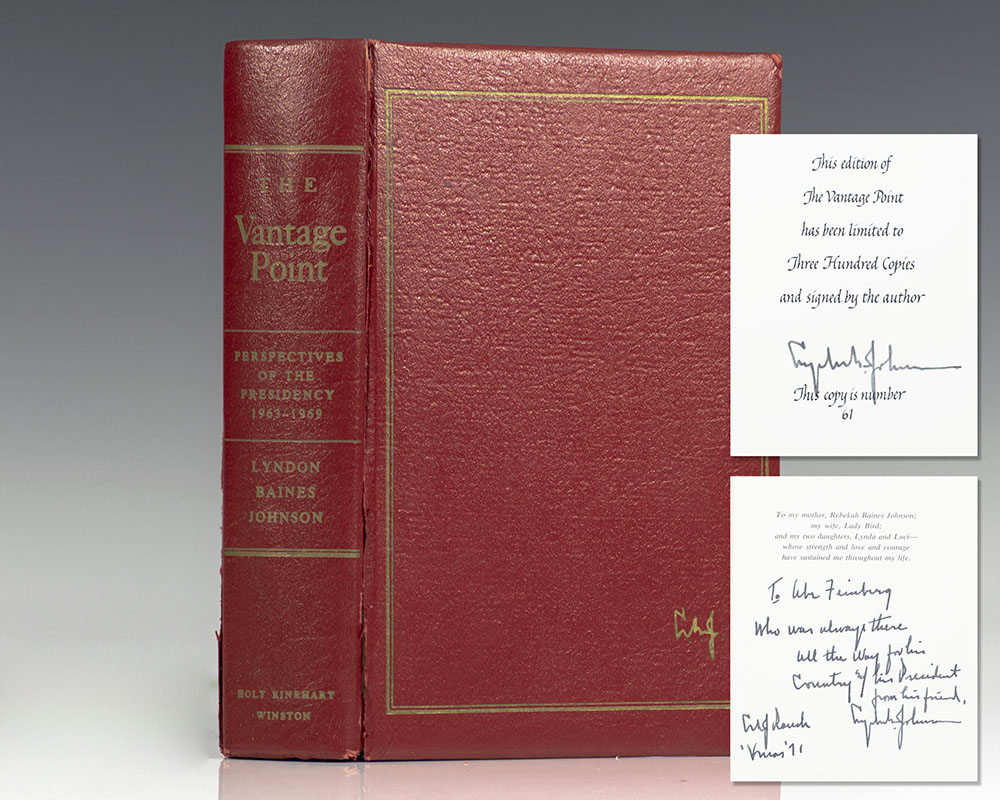 THE
Vantage
Point
PERSPECTIVES
OF THE
PRESIDENCY
1963–1969
LYNDON
BAINES
JOHNSON
HOLT RINEHART
WINSTON
LBJ
This edition of
The Vantage Point
has been limited to
Three Hundred Copies
and signed by the author
Lyndon B. Johnson
This copy is number
61
To my mother, Rebekah Baines Johnson;
my wife, Lady Bird;
and my two daughters, Lynda and Luci—
whose strength and love and courage
have sustained me throughout my life.
To Abe Feinberg
Who was always there
all the way for his
Country & his President
from his friend,
Lyndon B. Johnson
LBJ Ranch
'Xmas' 71